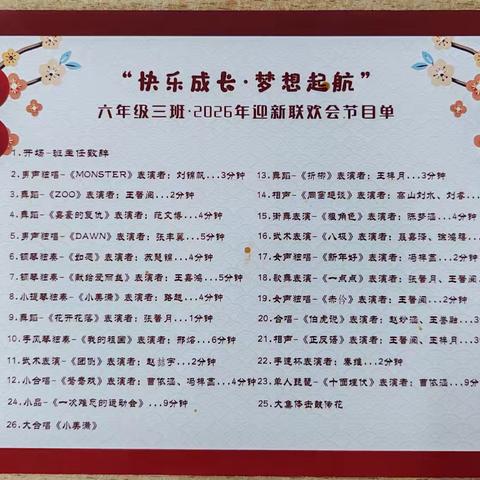 “快乐成长·梦想起航”
六年级三班·2026年迎新联欢会节目单
1.开场-班主任致辞
2.男声独唱-《MONSTER》表演者:刘锦航...3分钟
3.舞蹈-《ZOO》表演者:王馨阅...2分钟
4.舞蹈-《嘉豪的复仇》表演者:范文博...4分钟
5.男声独唱-《DAWN》表演者:张丰冀...5分钟
6.钢琴独奏-《如愿》表演者:苏慧锦...4分钟
7.钢琴独奏-《献给爱丽丝》表演者:王嘉鸿...5分钟
8.小提琴独奏-《小美满》表演者:路超...4分钟
9.舞蹈-《花开花落》表演者:张馨月...1分钟
10.手风琴独奏-《我的祖国》表演者:邢熔...6分钟
11.武术表演-《团圆》表演者:赵 宇...2分钟
12.小合唱-《鸳鸯戏》表演者:曹依涵、冯梓萱...4分钟
24.小品-《一次难忘的运动会》...9分钟
26.大合唱《小美满》
13.舞蹈-《折柳》表演者:王梓月...3分钟
14.相声-《周末趣谈》表演者:高山刘水、刘
15.街舞表演-《服角色》表演者:陈梦涵...4分钟
16.武术表演-《八极》表演者:聂嘉泽、徐鸿
17.女声独唱-《新年好》表演者:冯梓萱...2分钟
18.歌舞表演-《一点点》表演者:张馨月、王
19.女声独唱-《赤伶》表演者:王馨阅...2分钟
20.合唱-《伯虎说》表演者:赵妙涵、王
21.相声-《正反话》表演者:王馨阅、王梓月...3
22.手速杯表演者:秦维...2分钟
23.单人琵琶-《十面埋伏》表演者:曹依涵...9分钟
25.大集体击鼓传花